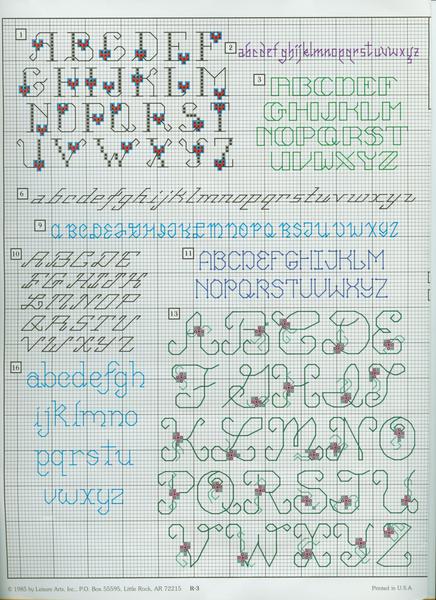 1
ABCDEF
GHIJKLM
NOPQRST
UVWXYZ
2
abcdefghijklmnopqrstuvwxyz
3
ABCDEF
GHIJKLM
NOPQRST
UVWXYZ
6
abcdefghijklmnopqrstuvwxyz
9
ABCDEFGHIJKLMNOPQRSTUVWXYZ
10
ABCDE
FGHIJK
LMNOP
QRSTU
VWXYZ
11
ABCDEFGHIJKLM
NOPQRSTUVWXYZ
13
ABCDE
FGHIJ
KLMNO
PQRSTU
VWXYZ
16
abcdefgh
ijklmno
pqrstu
vwxyz
© 1985 by Leisure Arts, Inc., P.O. Box 55595, Little Rock, AR 72215 R-3 Printed in U.S.A.